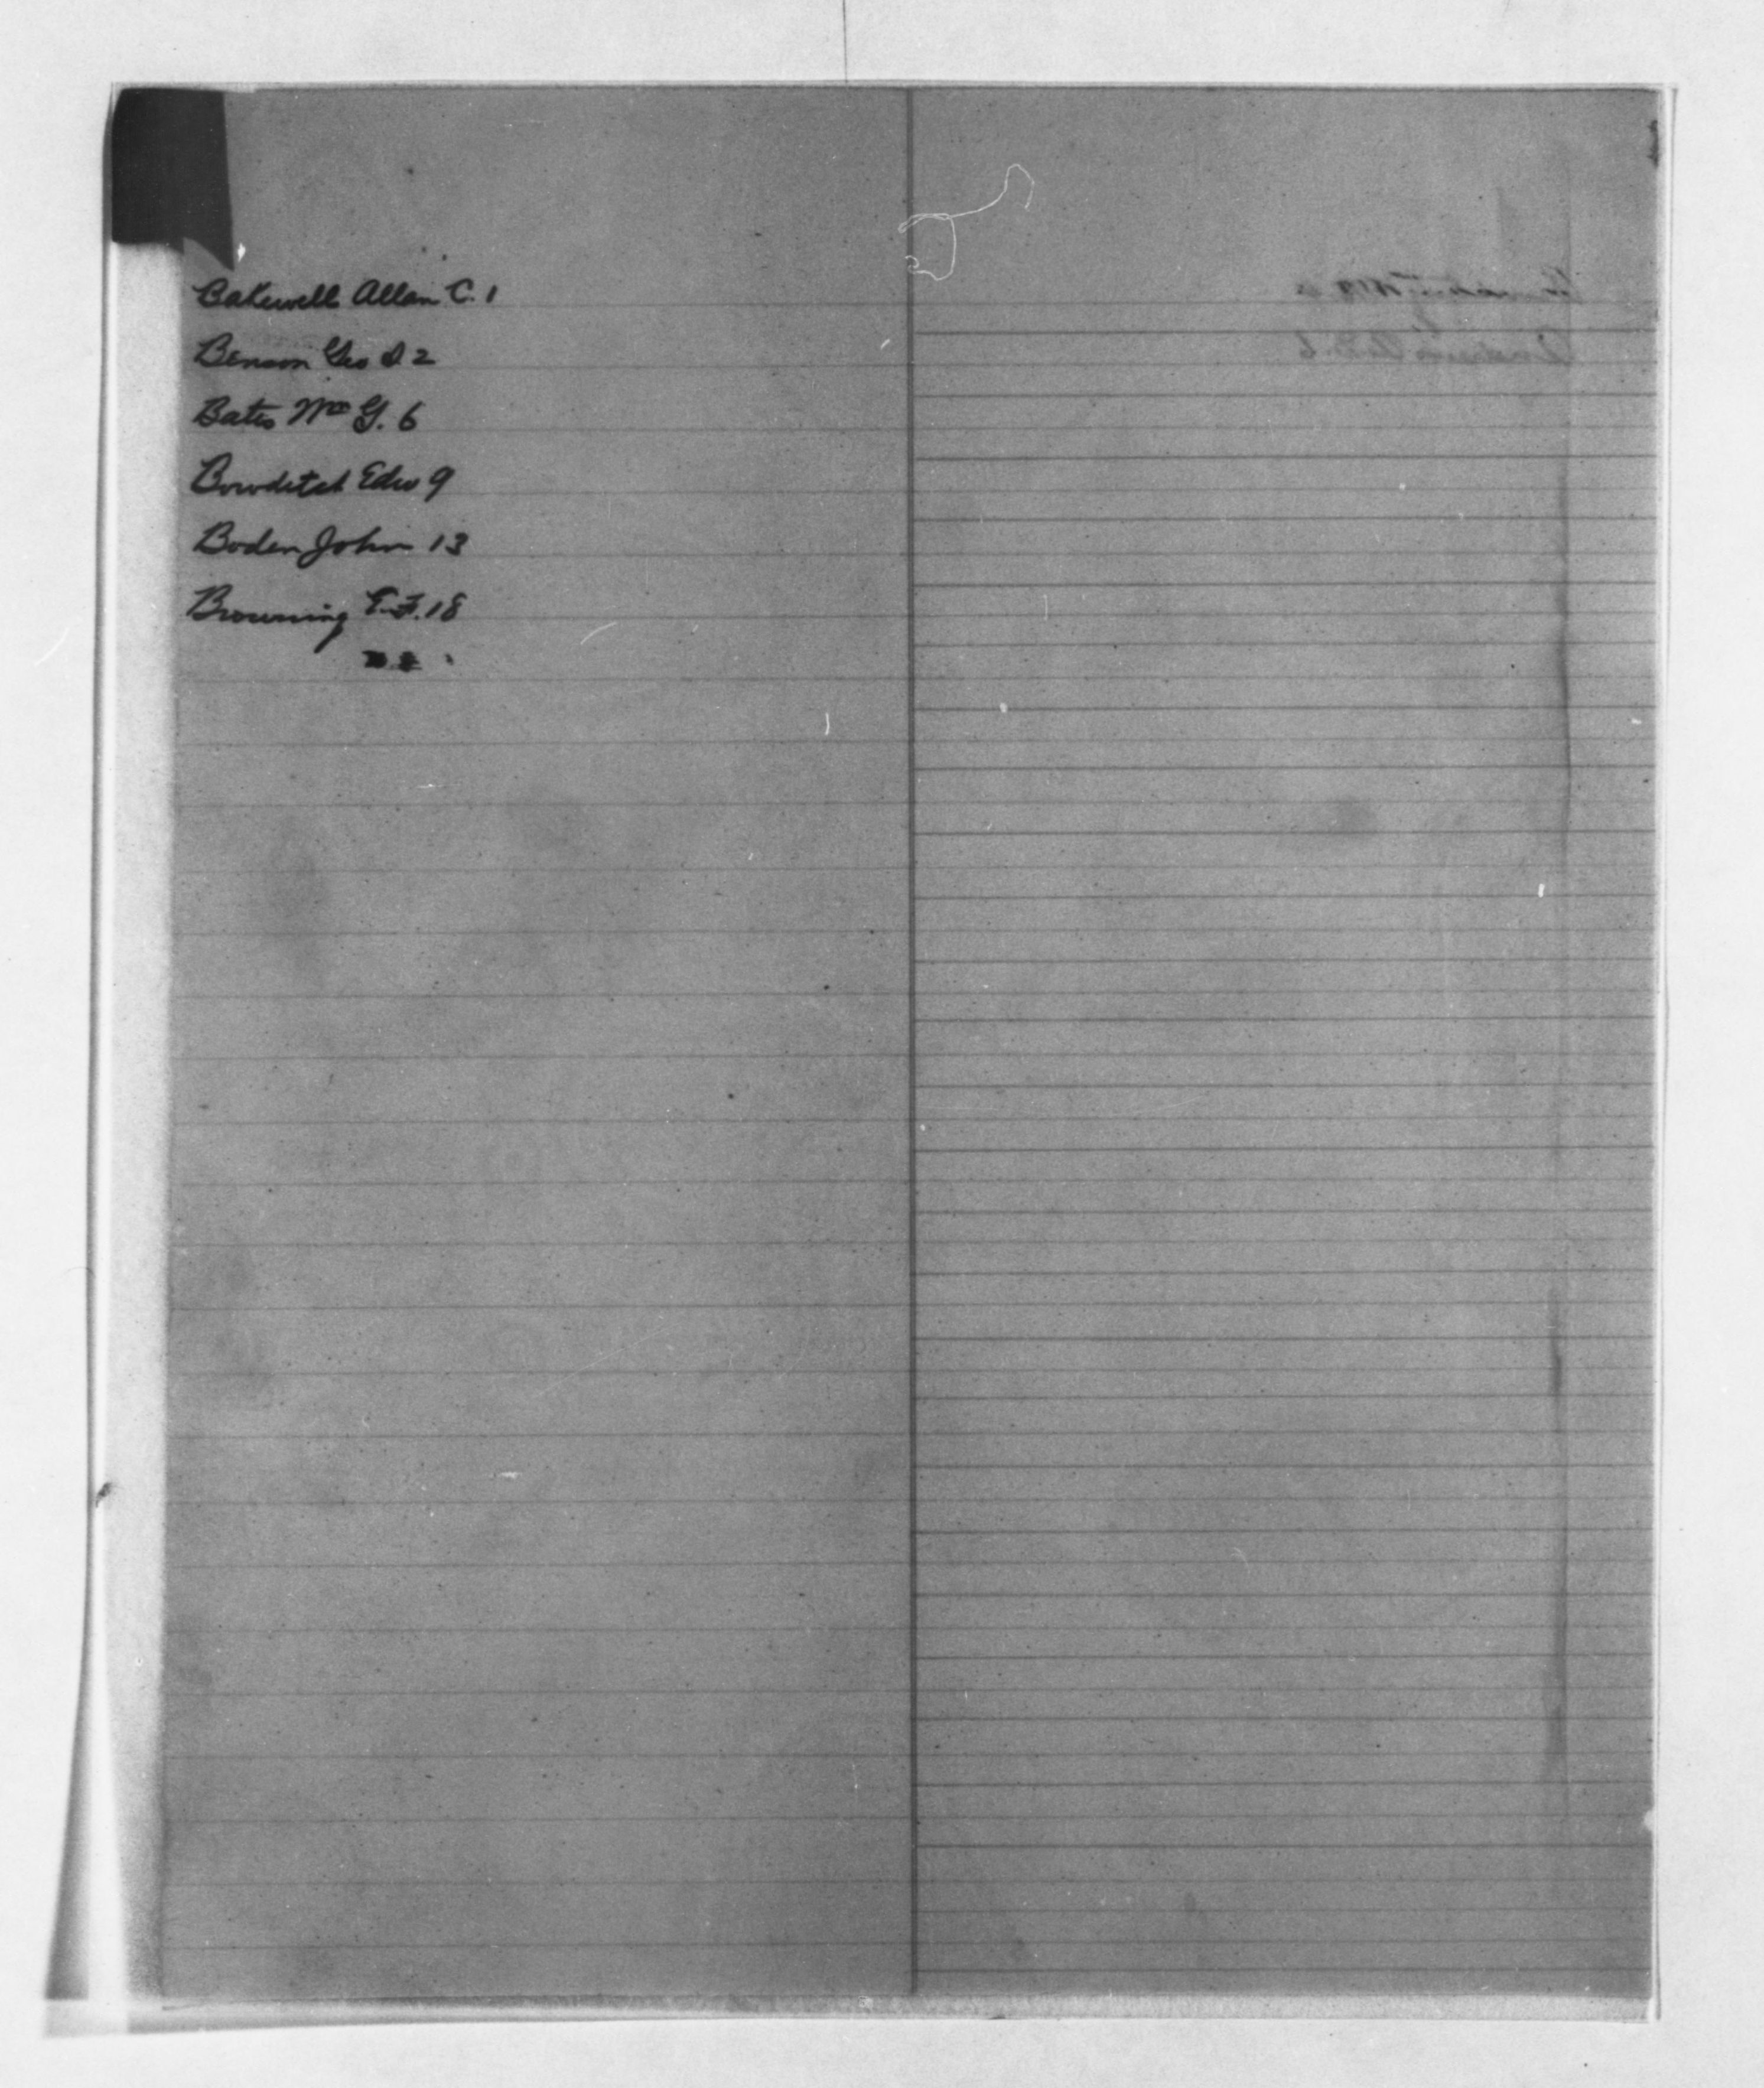 Bakewell Allan C. 1
Benson Geo S 2
Bates Wm G. 6
Bowditch Edw 9
Boden John 13
Browning E. F. 18